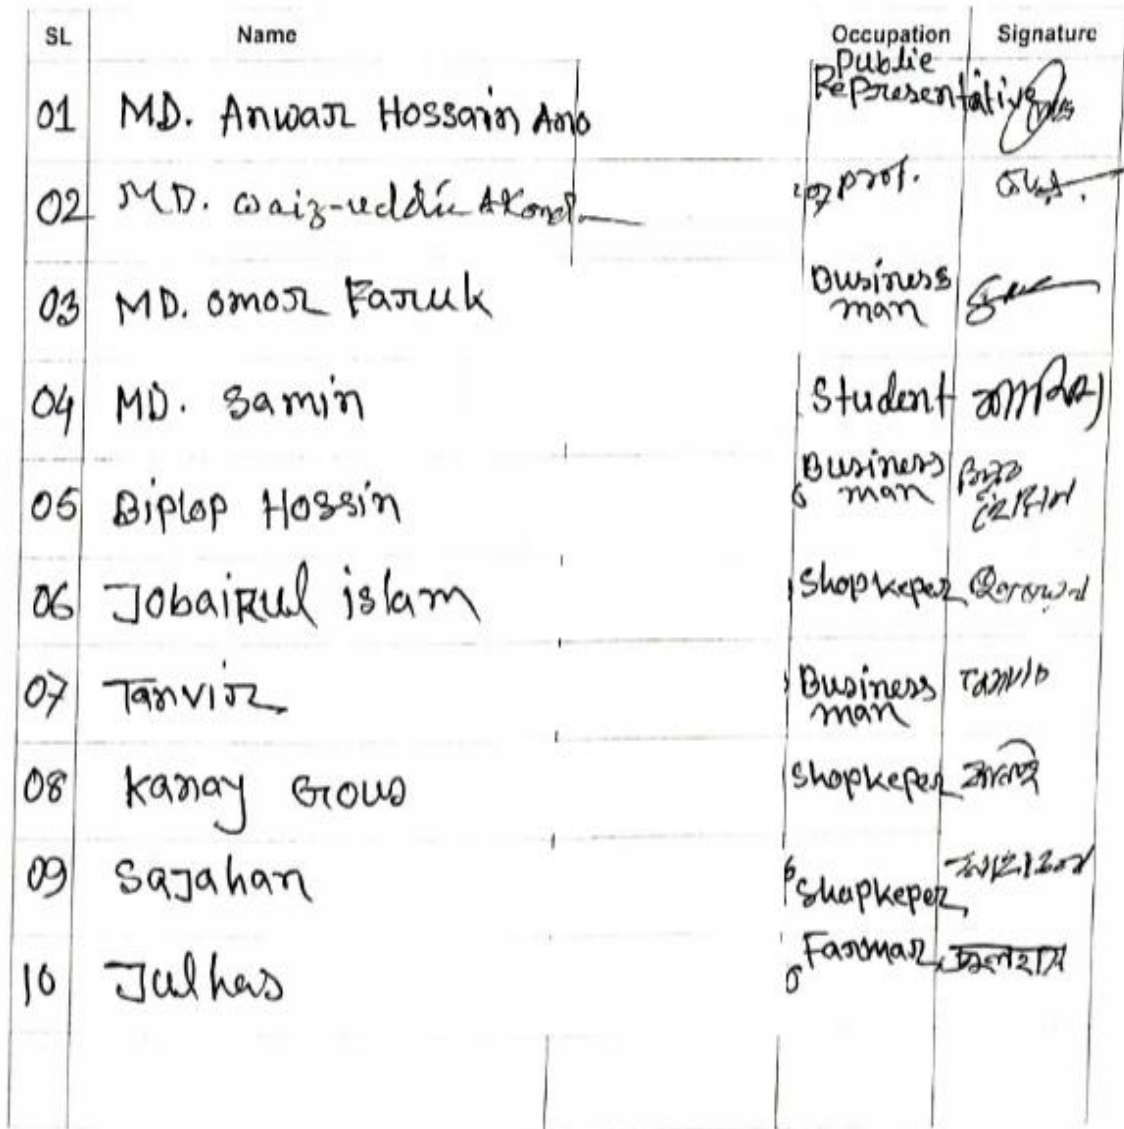 SL Name Occupation Signature
01 MD. Anwar Hossain Ano Public Representative
02 MD. Waiz-uddin Akond prof.
03 MD. Omor Faruk Business man
04 MD. Samin Student
05 Biplop Hossin Business man
06 Jobairul islam Shopkeper
07 Tanvir Business man
08 Kanay Gous Shopkeper
09 Sajahan Shapkeper
10 Julhas Farmar জুলহাস